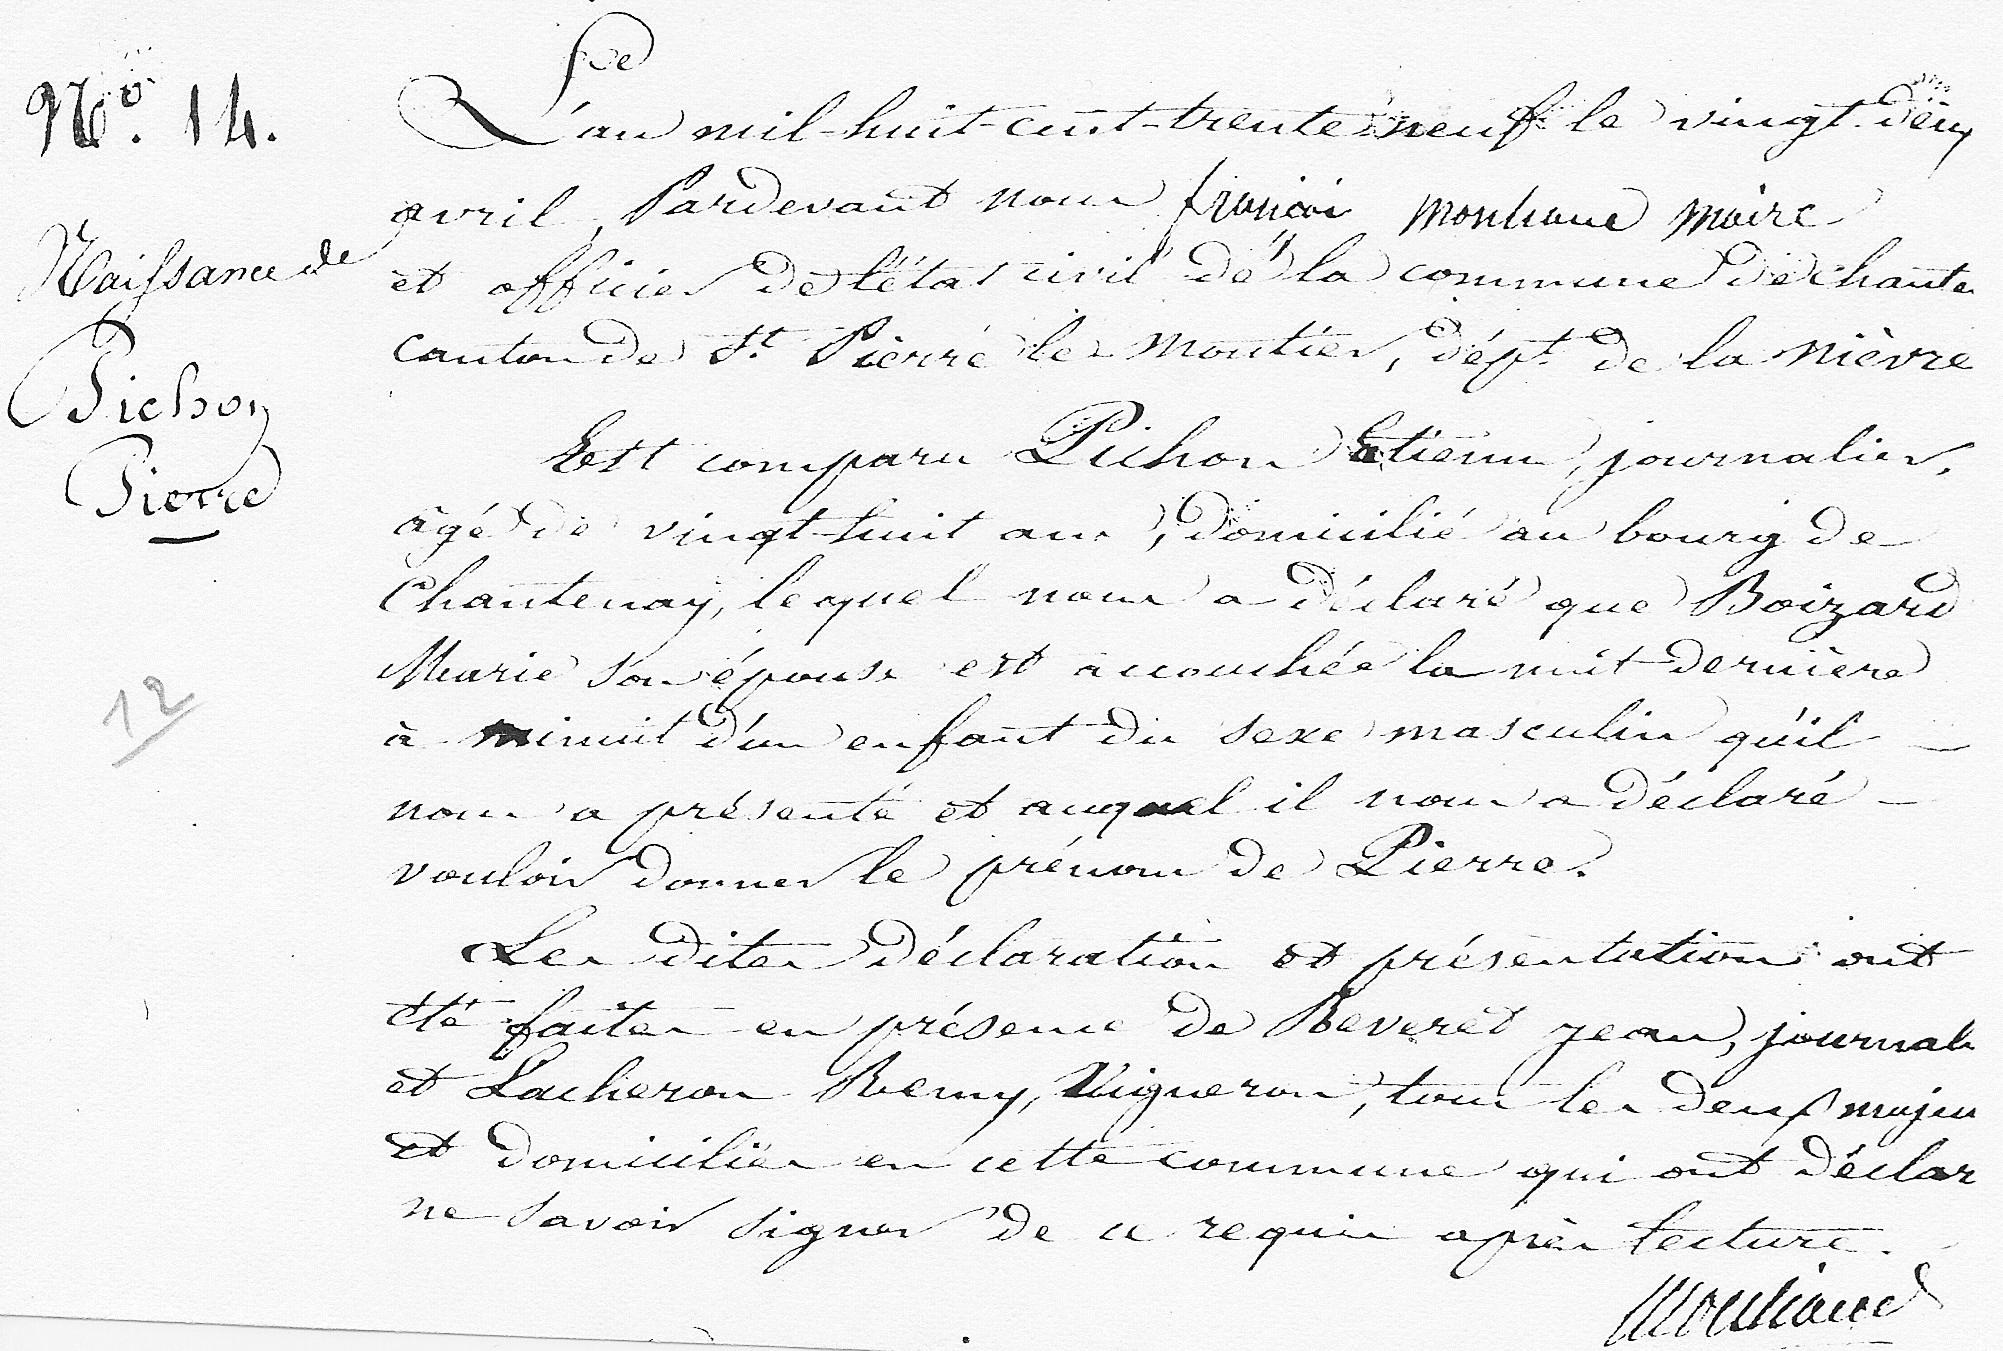 N.º 14.
L'an mil-huit-cent-trente neuf le vingt-deux
avril, Pardevant nous françois maire
Naissance de
et officier de l'état civil de la commune de Chante
canton de St. Pierre le Moutier, dépt. de la Nièvre
Pichon
Est comparu Pichon Etienne, journalier,
Pierre
âgé de vingt-huit ans, domicilié au bourg de
Chantenay, lequel nous a déclaré que Boizard
Marie son épouse est accouchée la nuit dernière
12
à minuit d'un enfant du sexe masculin qu'il
nous a présenté et auquel il nous a déclaré
vouloir donner le prénom de Pierre.
Les dites déclaration et présentation ont
été faites en présence de Beveret Jean, journali
et Lacheron Remy, Vigneron, tous les deux majeu
et domiciliés en cette commune qui ont déclar
ne savoir signer de ce requis après lecture.